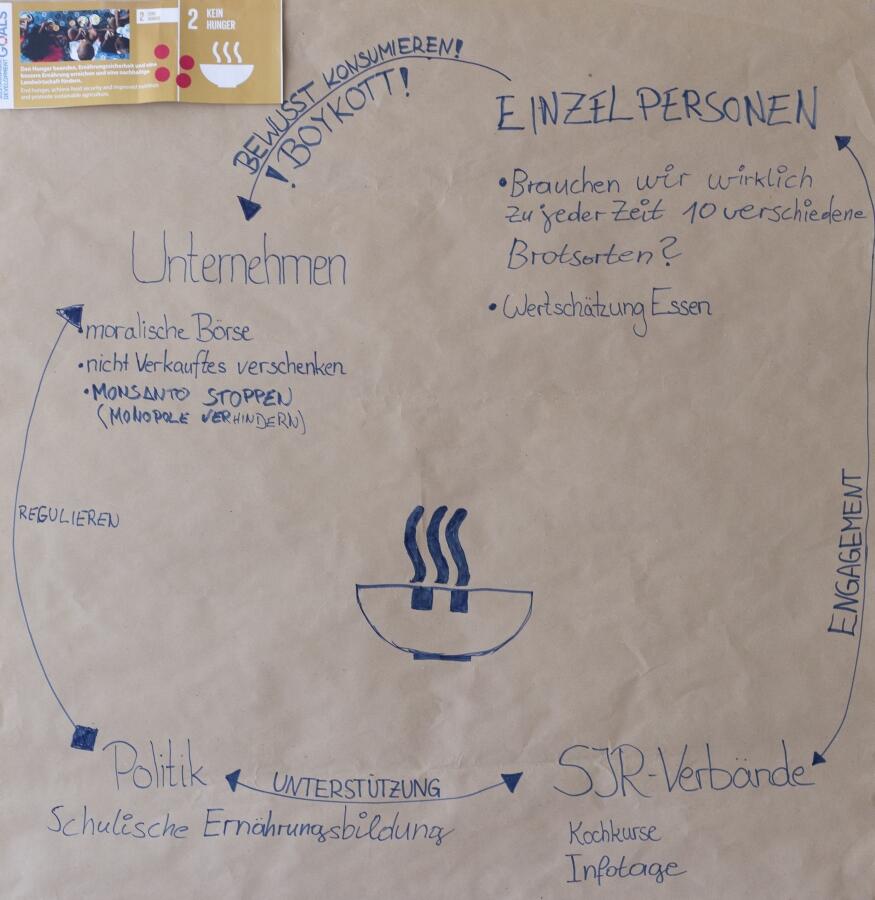 DEVELOPMENT GOALS
2
2 KEIN
HUNGER
Den Hunger beenden, Ernährungssicherheit und eine
bessere Ernährung erreichen und eine nachhaltige
Landwirtschaft fördern.
End hunger, achieve food security and improved nutrition
and promote sustainable agriculture.
BEWUSST KONSUMIEREN!
! BOYKOTT!
EINZELPERSONEN
• Brauchen wir wirklich
zu jeder Zeit 10 verschiedene
Brotsorten?
• Wertschätzung Essen
Unternehmen
• moralische Börse
• nicht Verkauftes verschenken
• MONSANTO STOPPEN
(MONOPOLE VERHINDERN)
REGULIEREN
ENGAGEMENT
Politik
UNTERSTÜTZUNG
SJR-Verbände
Schulische Ernährungsbildung
Kochkurse
Infotage